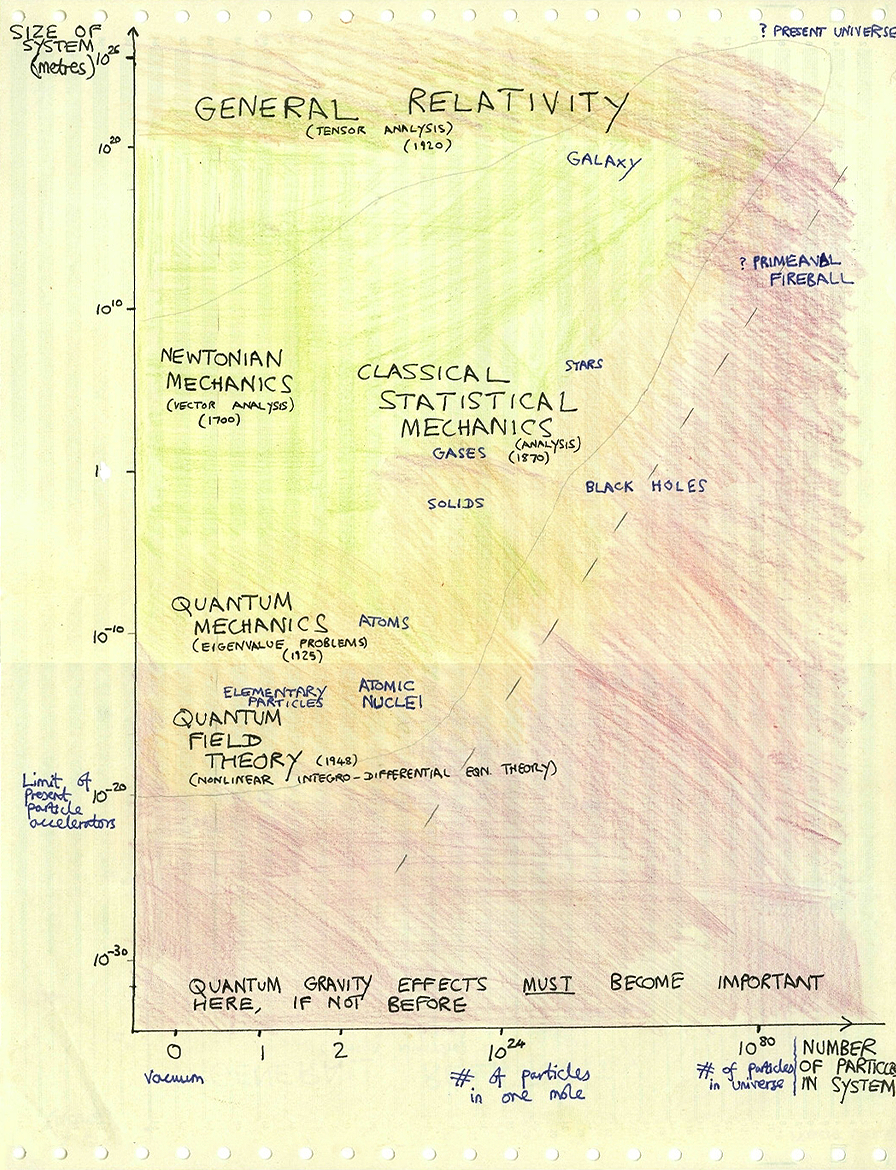 SIZE OF
SYSTEM
(metres)
? PRESENT UNIVERSE
10²⁶
GENERAL RELATIVITY
(TENSOR ANALYSIS)
(1920)
10²⁰
GALAXY
? PRIMEAVAL
FIREBALL
10¹⁰
NEWTONIAN
MECHANICS
(VECTOR ANALYSIS)
(1700)
CLASSICAL
STATISTICAL
MECHANICS
(ANALYSIS)
(1870)
STARS
GASES
1
BLACK HOLES
SOLIDS
QUANTUM
MECHANICS
(EIGENVALUE PROBLEMS)
(1925)
ATOMS
10⁻¹⁰
ELEMENTARY
PARTICLES
ATOMIC
NUCLEI
QUANTUM
FIELD
THEORY (1948)
(NONLINEAR INTEGRO-DIFFERENTIAL EQN. THEORY)
Limit of
present
particle
accelerators
10⁻²⁰
10⁻³⁰
QUANTUM GRAVITY EFFECTS MUST BECOME IMPORTANT
HERE, IF NOT BEFORE
0 1 2 10²⁴ 10⁸⁰
Vacuum
# of particles
in one mole
# of particles
in universe
NUMBER
OF PARTICLES
IN SYSTEM